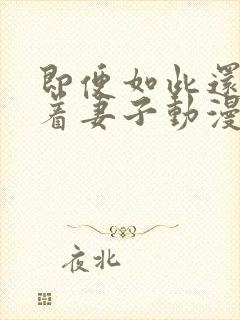 即便如此還
着妻子動漫
夜北